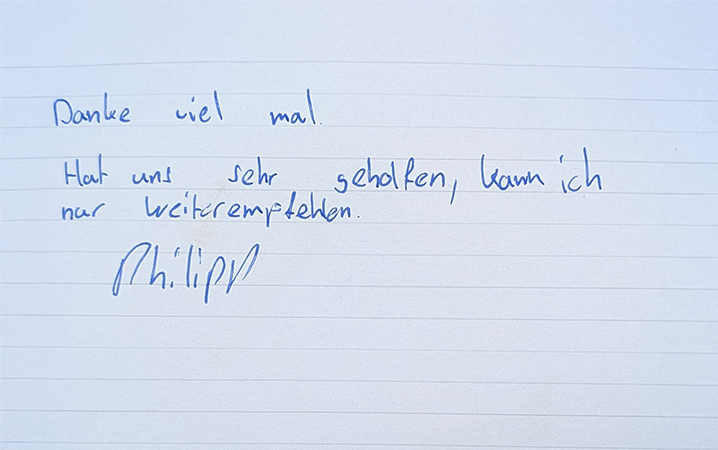 Danke viel mal.
Hat uns sehr geholfen, kann ich
nur weiterempfehlen.
Philipp